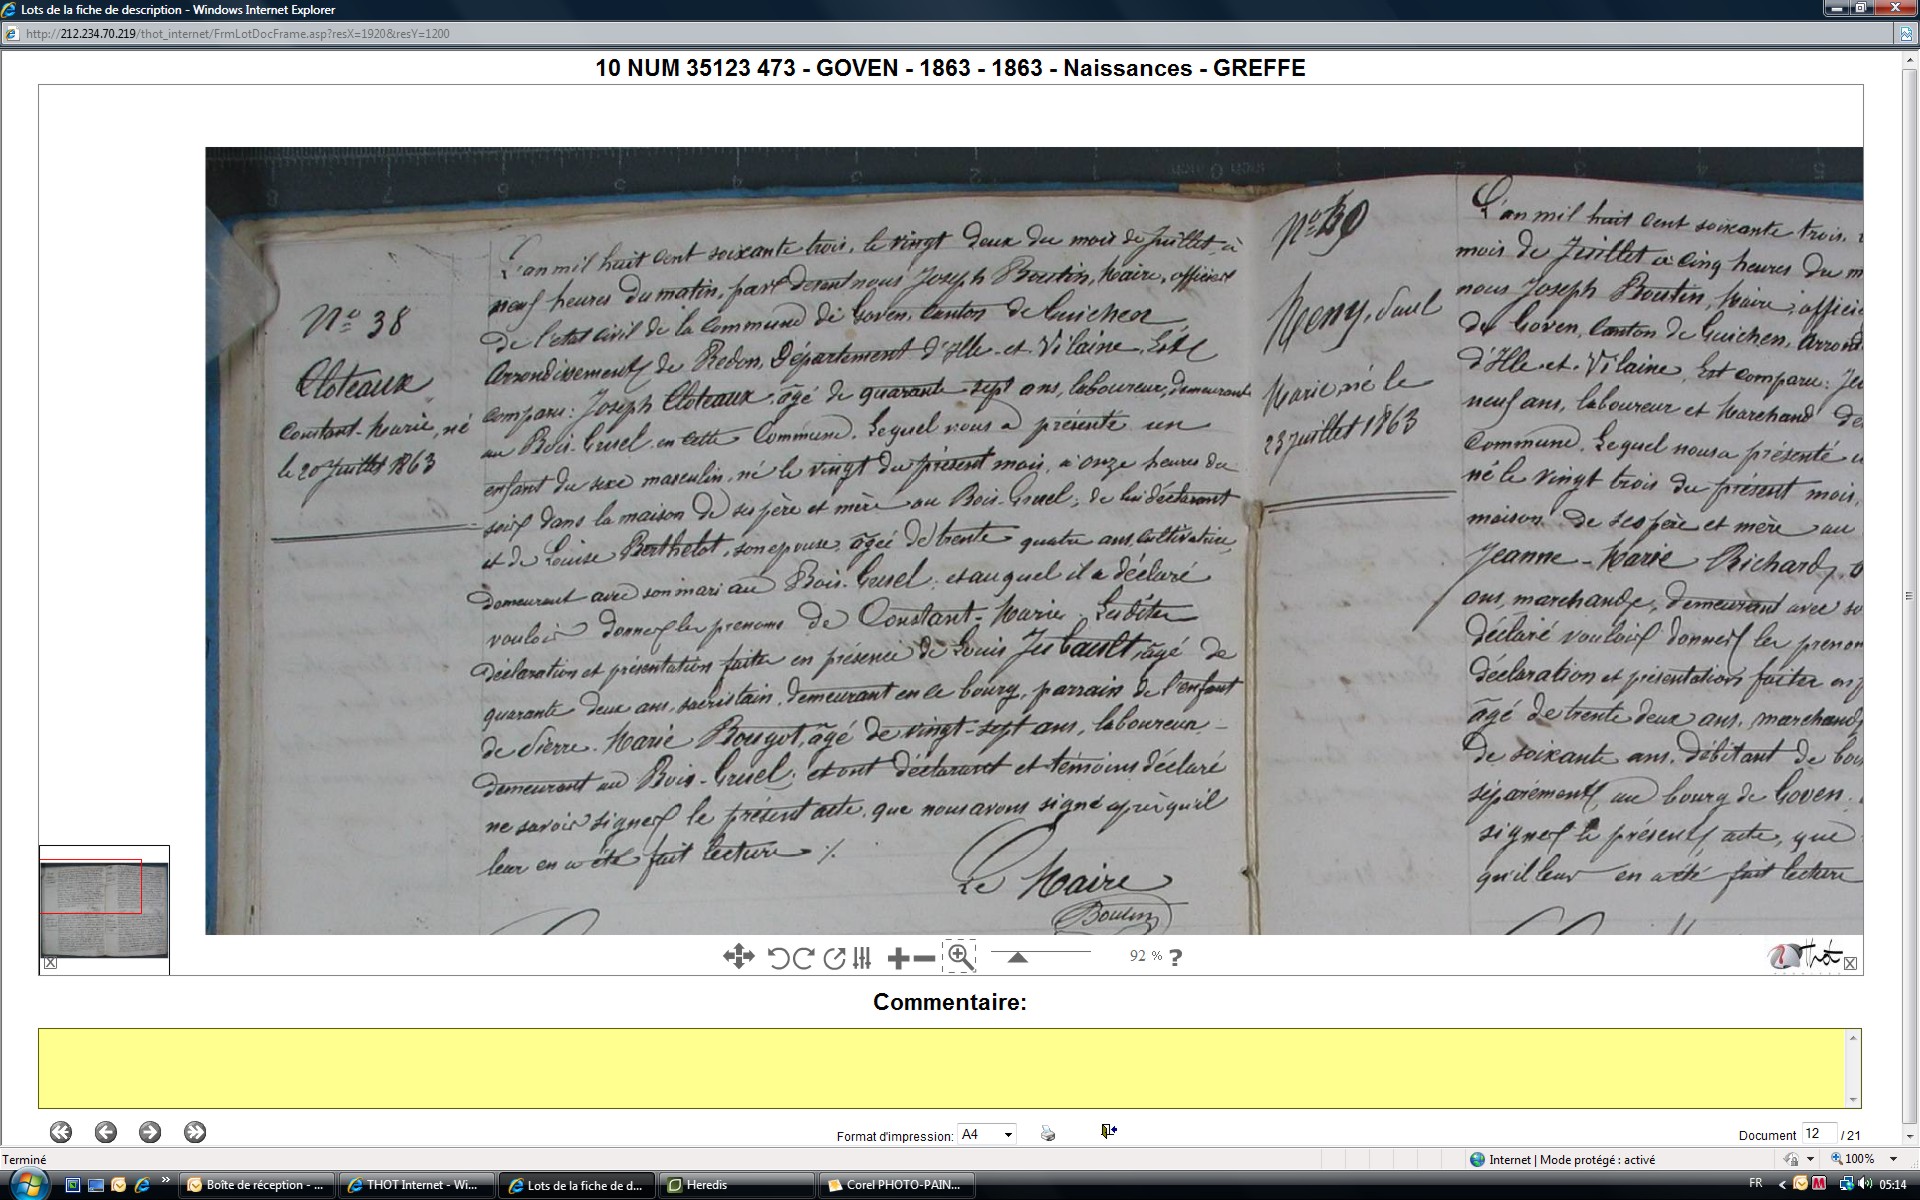 Lots de la fiche de description - Windows Internet Explorer
http://212.234.70.219/thot_internet/FrmLotDocFrame.asp?resX=1920&resY=1200
10 NUM 35123 473 - GOVEN - 1863 - 1863 - Naissances - GREFFE
N° 38
Cloteaux
Constant-Marie, né
le 20 Juillet 1863
L'an mil huit cent soixante trois, le vingt deux du mois de Juillet, à
neuf heures du matin, par devant nous Joseph Boutin, Maire, officier
de l'etat civil de la Commune de Goven, Canton de Guichen
Arrondissement de Redon, Département d'Ille-et-Vilaine, Est
comparu: Joseph Cloteaux, âgé de quarante-sept ans, laboureur, demeurant
au Bois-Gruel en cette Commune. Lequel nous a présenté un
enfant du sexe masculin, né le vingt du présent mois, à onze heures du
soir dans la maison de ses père et mère au Bois-Gruel, de lui déclarant
et de Louise Berthelot, son epouse, âgée de trente quatre ans, cultivatrice,
demeurant avec son mari au Bois-Gruel; et auquel il a déclaré
vouloir donner les prenoms de Constant-Marie. Lesdites
déclaration et présentation faites en présence de Louis Jubault, âgé de
quarante deux ans, sacristain, demeurant en ce bourg, parrain de l'enfant
de Pierre-Marie Bougot, âgé de vingt-sept ans, laboureur
demeurant au Bois-Gruel; et ont déclarant et témoins déclaré
ne savoir signer le présent acte, que nous avons signé après qu'il
leur en a été fait lecture ./.
Le Maire
Boutin
N° 39
Remy, Paul
Marie, né le
23 Juillet 1863
L'an mil huit cent soixante trois,
mois de Juillet à cinq heures du m
nous Joseph Boutin, Maire, officie
de Goven, Canton de Guichen, Arrond
d'Ille-et-Vilaine, Est comparu: Je
neuf ans, laboureur et Marchand de
Commune. Lequel nous a présenté u
né le vingt trois du présent mois,
maison de ses père et mère au
Jeanne-Marie Richard,
ans, marchande, demeurant avec so
déclaré vouloir donner les prenom
déclaration et présentation faites en p
âgé de trente deux ans, marchand
de soixante ans, débitant de boi
séparément au bourg de Goven.
signer le présent acte, que
qu'il leur en a été fait lecture
92 % ?
Thot
Commentaire:
Format d'impression: A4
Document 12 / 21
Terminé
Internet | Mode protégé : activé
100%
Boîte de réception - ...
THOT Internet - Wi...
Lots de la fiche de d...
Heredis
Corel PHOTO-PAIN...
FR
05:14